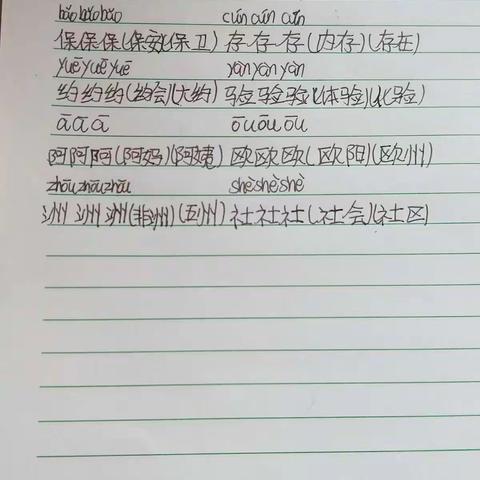 bǎo bǎo bǎo cún cún cún
保保保(保安)(保卫) 存存存(内存)(存在)
yuē yuē yuē yàn yàn yàn
约约约(约会)(大约) 验验验(体验)(化验)
ā ā ā ōu ōu ōu
阿阿阿(阿妈)(阿姨) 欧欧欧(欧阳)(欧州)
zhōu zhōu zhōu shè shè shè
洲洲洲(非洲)(五州) 社社社(社会)(社区)